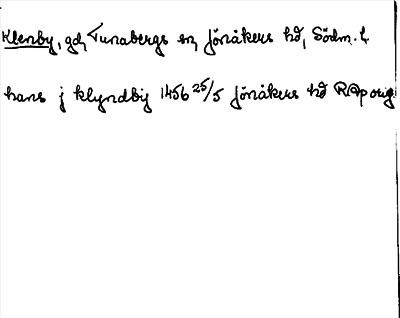 Klenby, gd, Tunabergs sn, Jönåkers hd, Södm. l.
hans j klyndby 1456 25/5 Jönåkers hd RAp orig